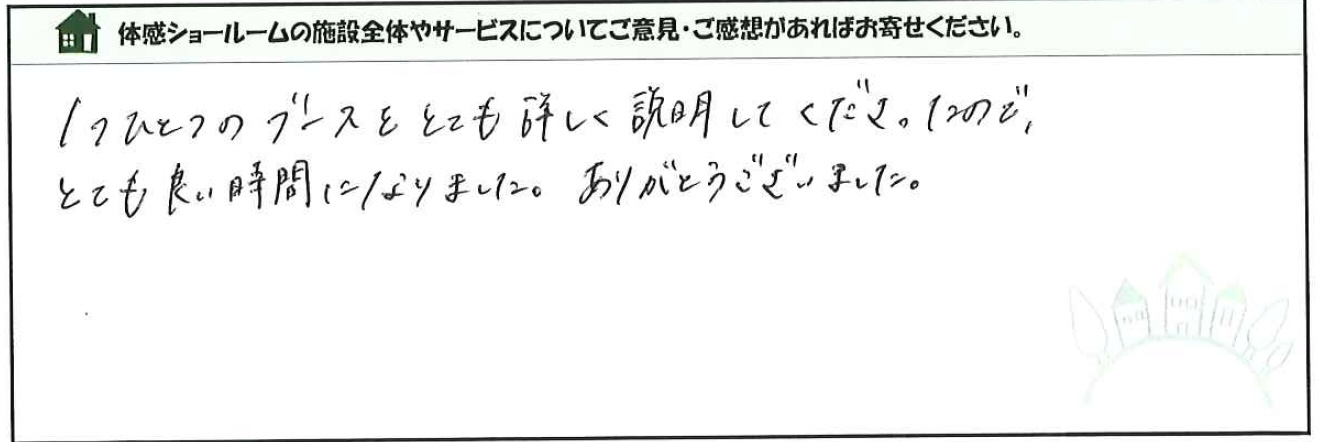 体感ショールームの施設全体やサービスについてご意見・ご感想があればお寄せください。
1つひとつのブースをとても詳しく説明してくださったので、
とても良い時間になりました。ありがとうございました。